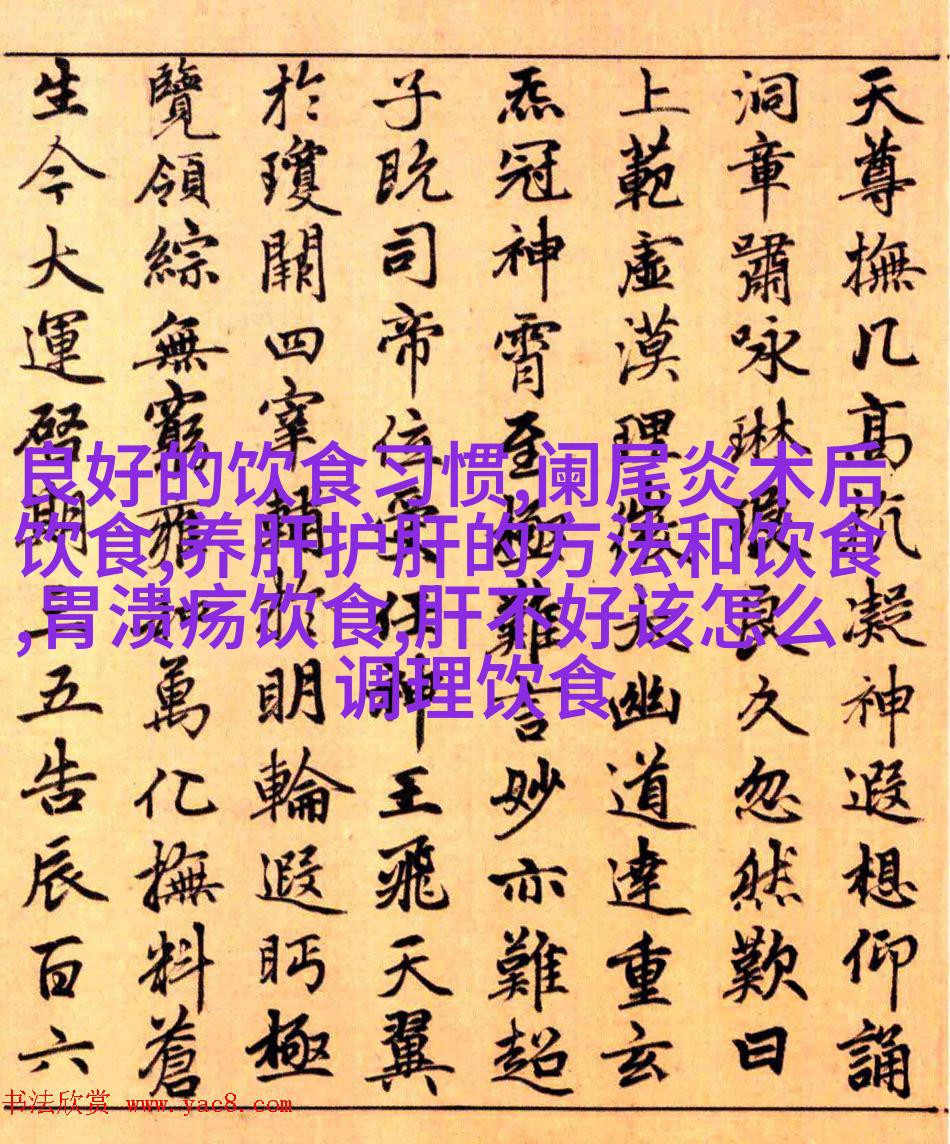 天尊撫几高抗凝神遐想仰誦
洞章嘯咏琳良久忽然歎曰
上範虛漠理微太幽道達重玄
炁冠神霄至極難言妙亦難超
子既司帝位受任神王飛天翼
於瓊闕四宰輔於明輪遐眄極
覽領綜無窮雍和萬化撫料蒼
生今大運啓期三五告辰百六
良好的饮食习惯,阑尾炎术后
饮食,养肝护肝的方法和饮食
,胃溃疡饮食,肝不好该怎么
调理饮食
书法欣赏 www.yac8.com